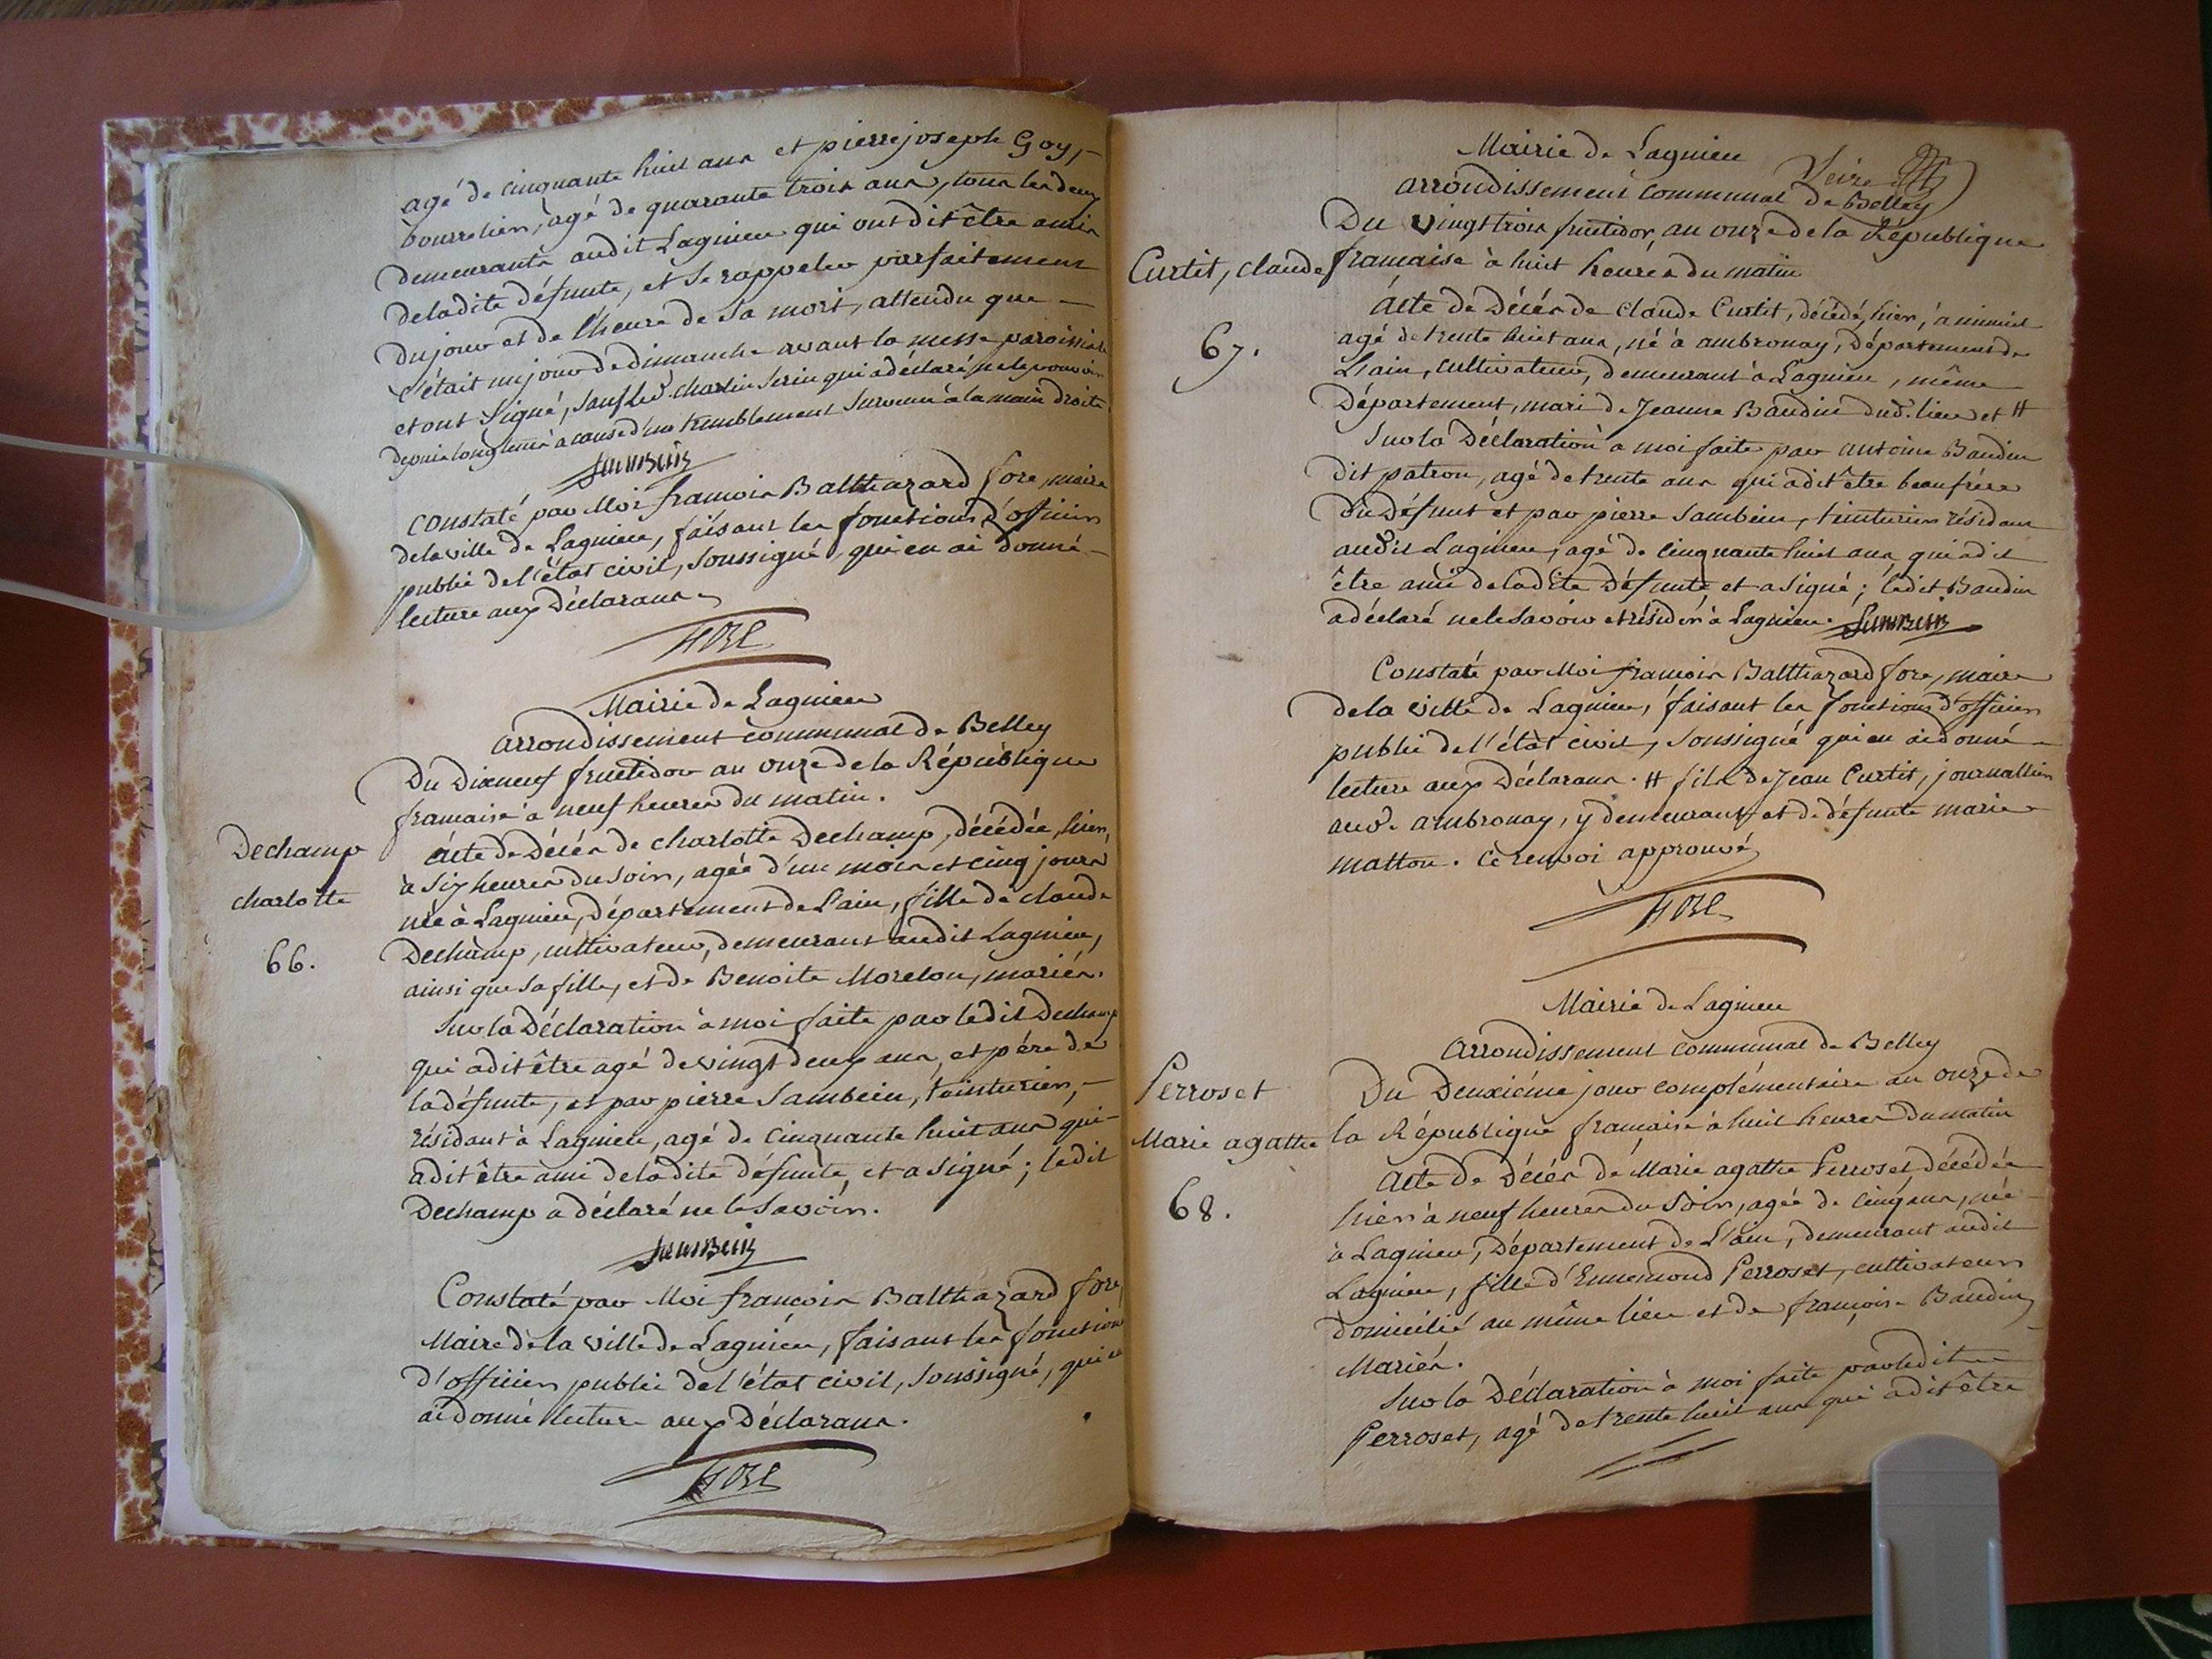 agé de cinquante huit ans et pierre joseph Goy,
bourrelier, agé de quarante trois ans, tous les deux
demeurants audit Lagnieu qui ont dit être amis
de ladite défunte, et se rappeler parfaitement
du jour et de l'heure de sa mort, attendu que
c'était un jour de dimanche avant la messe paroissiale
et ont signé, sauf led. charlin serin qui a déclaré ne le pouvoir
depuis longtems à cause d'un tremblement survenu à la main droite.
Sambein
Constaté par Moi francois Balthazard fore, maire
de la ville de Lagnieu, faisant les fonctions d'officier
public de l'état civil, soussigné, qui en ai donné
lecture aux Déclarans.
FORE
Mairie de Lagnieu
arrondissement communal de Belley
Du Dixneuf fructidor an onze de la République
francaise à neuf heures du matin.
Dechamp
charlotte
66.
Acte de Décès de charlotte Dechamp, décédée, hier,
à six heures du soir, agée d'un mois et cinq jours
née à Lagnieu, Département de Lain, fille de claude
Dechamp, cultivateur, demeurant audit Lagnieu,
ainsi que sa fille, et de Benoite Morelon, mariés.
Sur la Déclaration à moi faite par ledit Dechamp
qui a dit être agé de vingt deux ans, et pére de
la défunte, et par pierre Sambein, teinturier,
résidant à Lagnieu, agé de cinquante huit ans qui
a dit être ami de ladite défunte, et a signé; ledit
Dechamp a déclaré ne le savoir.
Sambein
Constaté par Moi francois Balthazard fore,
Maire de la ville de Lagnieu, faisant les fonctions
d'officier public de l'état civil, soussigné, qui en
ai donné lecture aux Déclarans.
FORE
Mairie de Lagnieu
arrondissement communal de Belley
Du vingt trois fructidor, an onze de la République
Curtit, claude
francaise à huit heures du matin
67.
Acte de Décès de claude Curtit, décédé, hier, à minuit
agé de trente huit ans, né à ambronay, Département de
L'ain, cultivateur, demeurant à Lagnieu, même
Département, mari de Jeanne Baudin dud. lieu et #
Sur la Déclaration à moi faite par antoine Baudin
dit patron, agé de trente ans qui a dit être beaufrére
du défunt et par pierre Sambein, teinturier résidant
audit Lagnieu, agé de cinquante huit ans, qui a dit
être ami de ladite défunte et a signé; ledit Baudin
a déclaré ne le savoir et résider à Lagnieu. Sambein
Constaté par Moi francois Balthazard fore, maire
de la ville de Lagnieu, faisant les fonctions d'officier
public de l'état civil, soussigné qui en ai donné
lecture aux Déclarans. # fils de Jean Curtit, journallier
aud. ambronay, y demeurant et de défunte marie
matton. Ce renvoi approuvé
FORE
Mairie de Lagnieu
Arrondissement communal de Belley
Du Deuxiéme jour complémentaire an onze de
Perroset
Marie agathe
la République francaise à huit heures du matin
68.
Acte de Décès de Marie agathe Perroset, décédée
hier à neuf heures du soir, agée de cinq ans, née
à Lagnieu, Département de L'ain, demeurant audit
Lagnieu, fille d'Ennemond Perroset, cultivateur
domicilié au même lieu et de françoise Baudin,
Mariés.
Sur la Déclaration à moi faite par ledit
Perroset, agé de trente huit ans qui a dit être